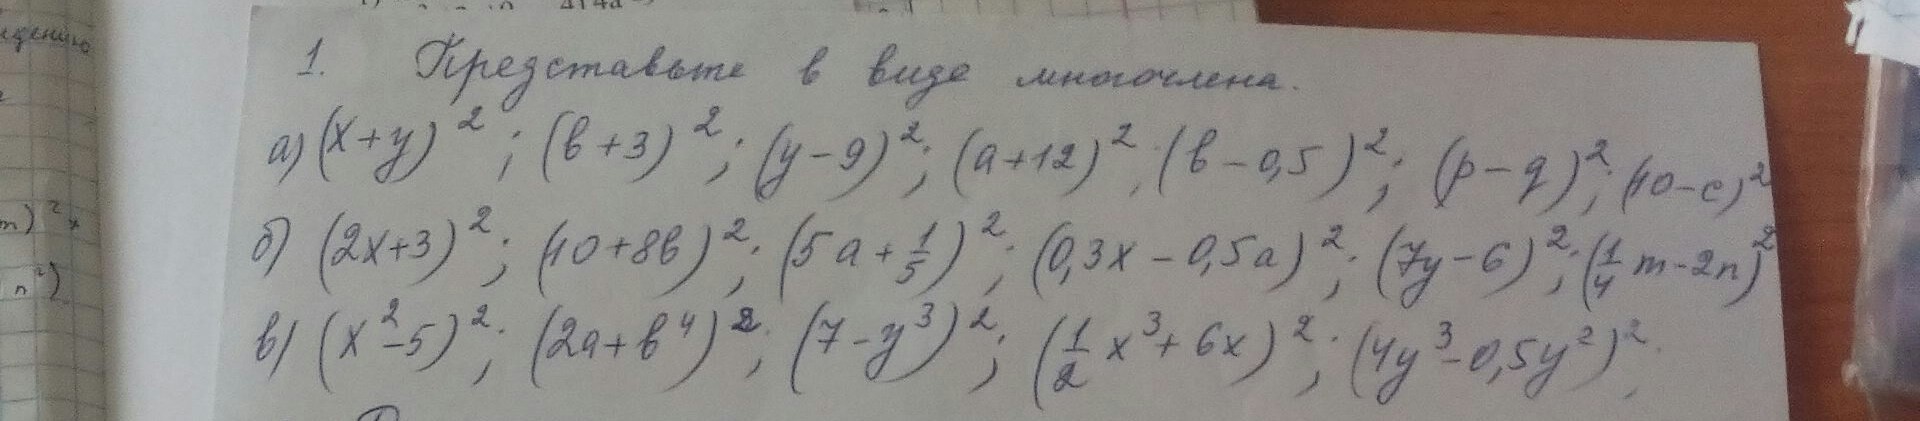 ждению
1. Представьте в виде многочлена.
а) (x+y)²; (b+3)²; (y-9)²; (a+12)²; (b-0,5)²; (p-q)²; (10-c)²
m)²
б) (2x+3)²; (10+8b)²; (5a+1/5)²; (0,3x-0,5a)²; (7y-6)²; (1/4m-2n)²
n²)
в) (x²-5)²; (2a+b⁴)²; (7-y³)²; (1/2x³+6x)²; (4y³-0,5y²)²;